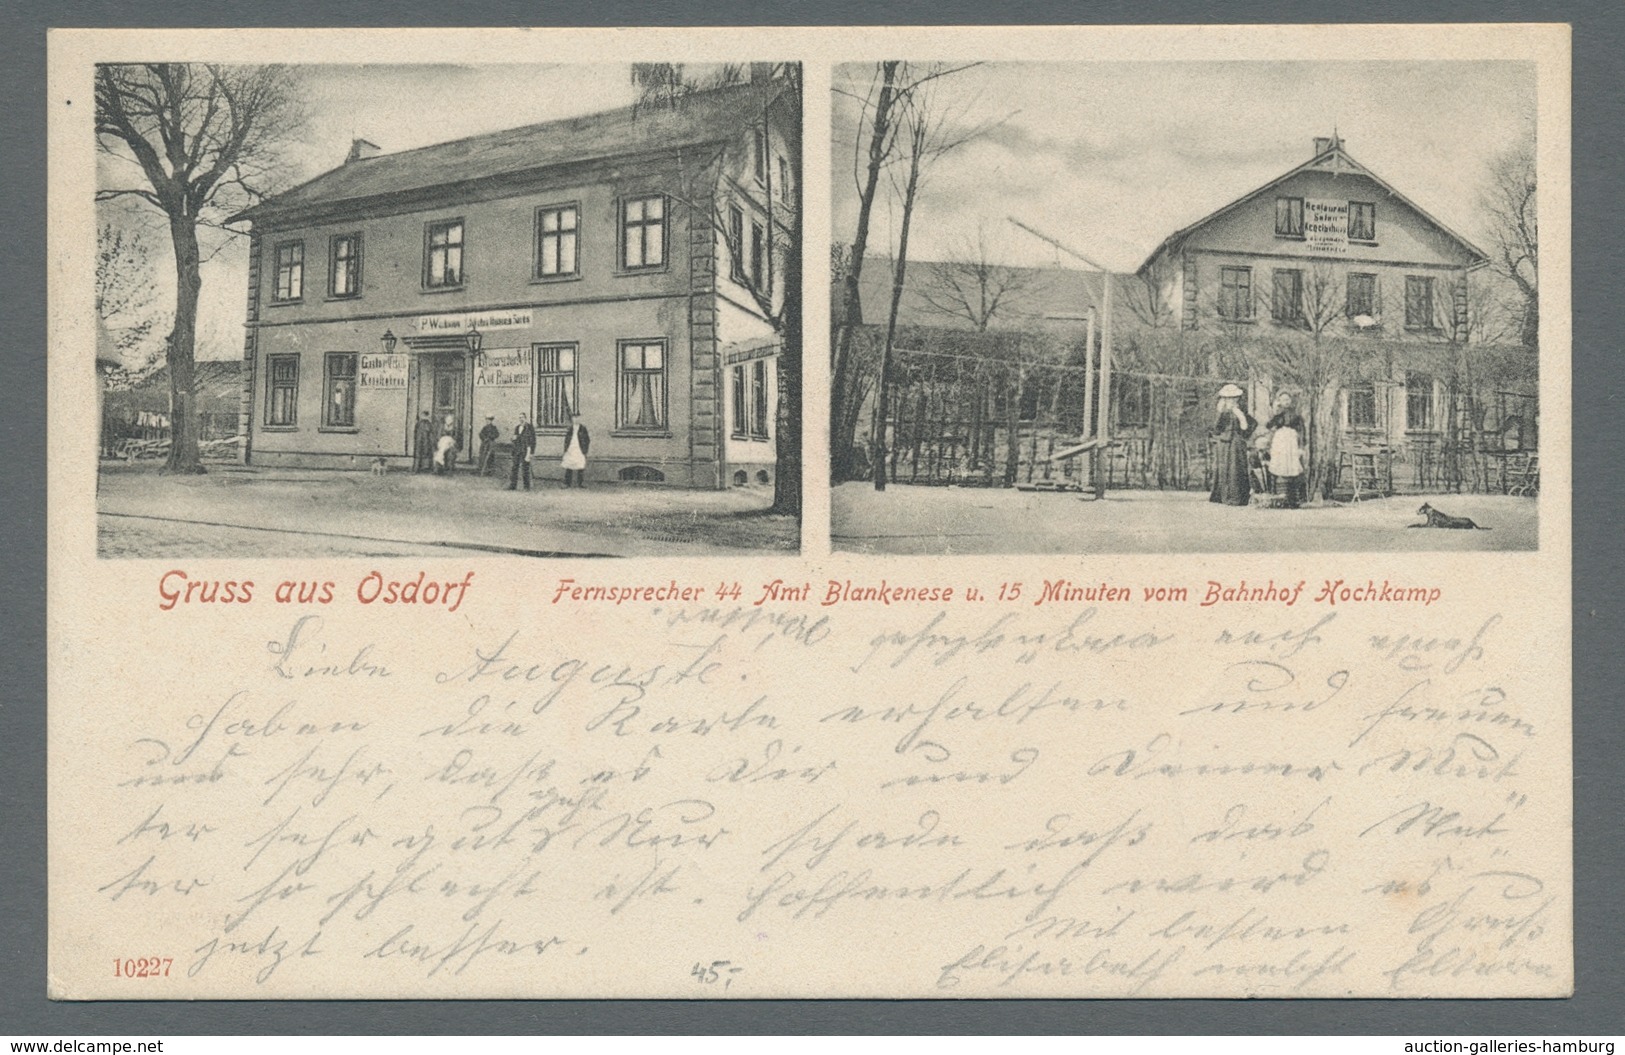 P. Wichmann
Gastwirt
Kegelbahn
Fernsprecher № 44
Amt Blankenese
Restaurant
Salon
Kegelbahn
Gruss aus Osdorf
Fernsprecher 44 Amt Blankenese u. 15 Minuten vom Bahnhof Hochkamp
Heute auch
Wetter.
Liebe Auguste.
Haben die Karte erhalten und freuen
uns sehr, daß es Dir und Deiner Mut
ter sehr gut geht Nur schade daß das Wet
ter so schlecht ist. Hoffentlich wird es
jetzt besser.
Mit bestem Gruß
Elisabeth nebst Eltern
10227
45,-
www.delcampe.net
auction-galleries-hamburg